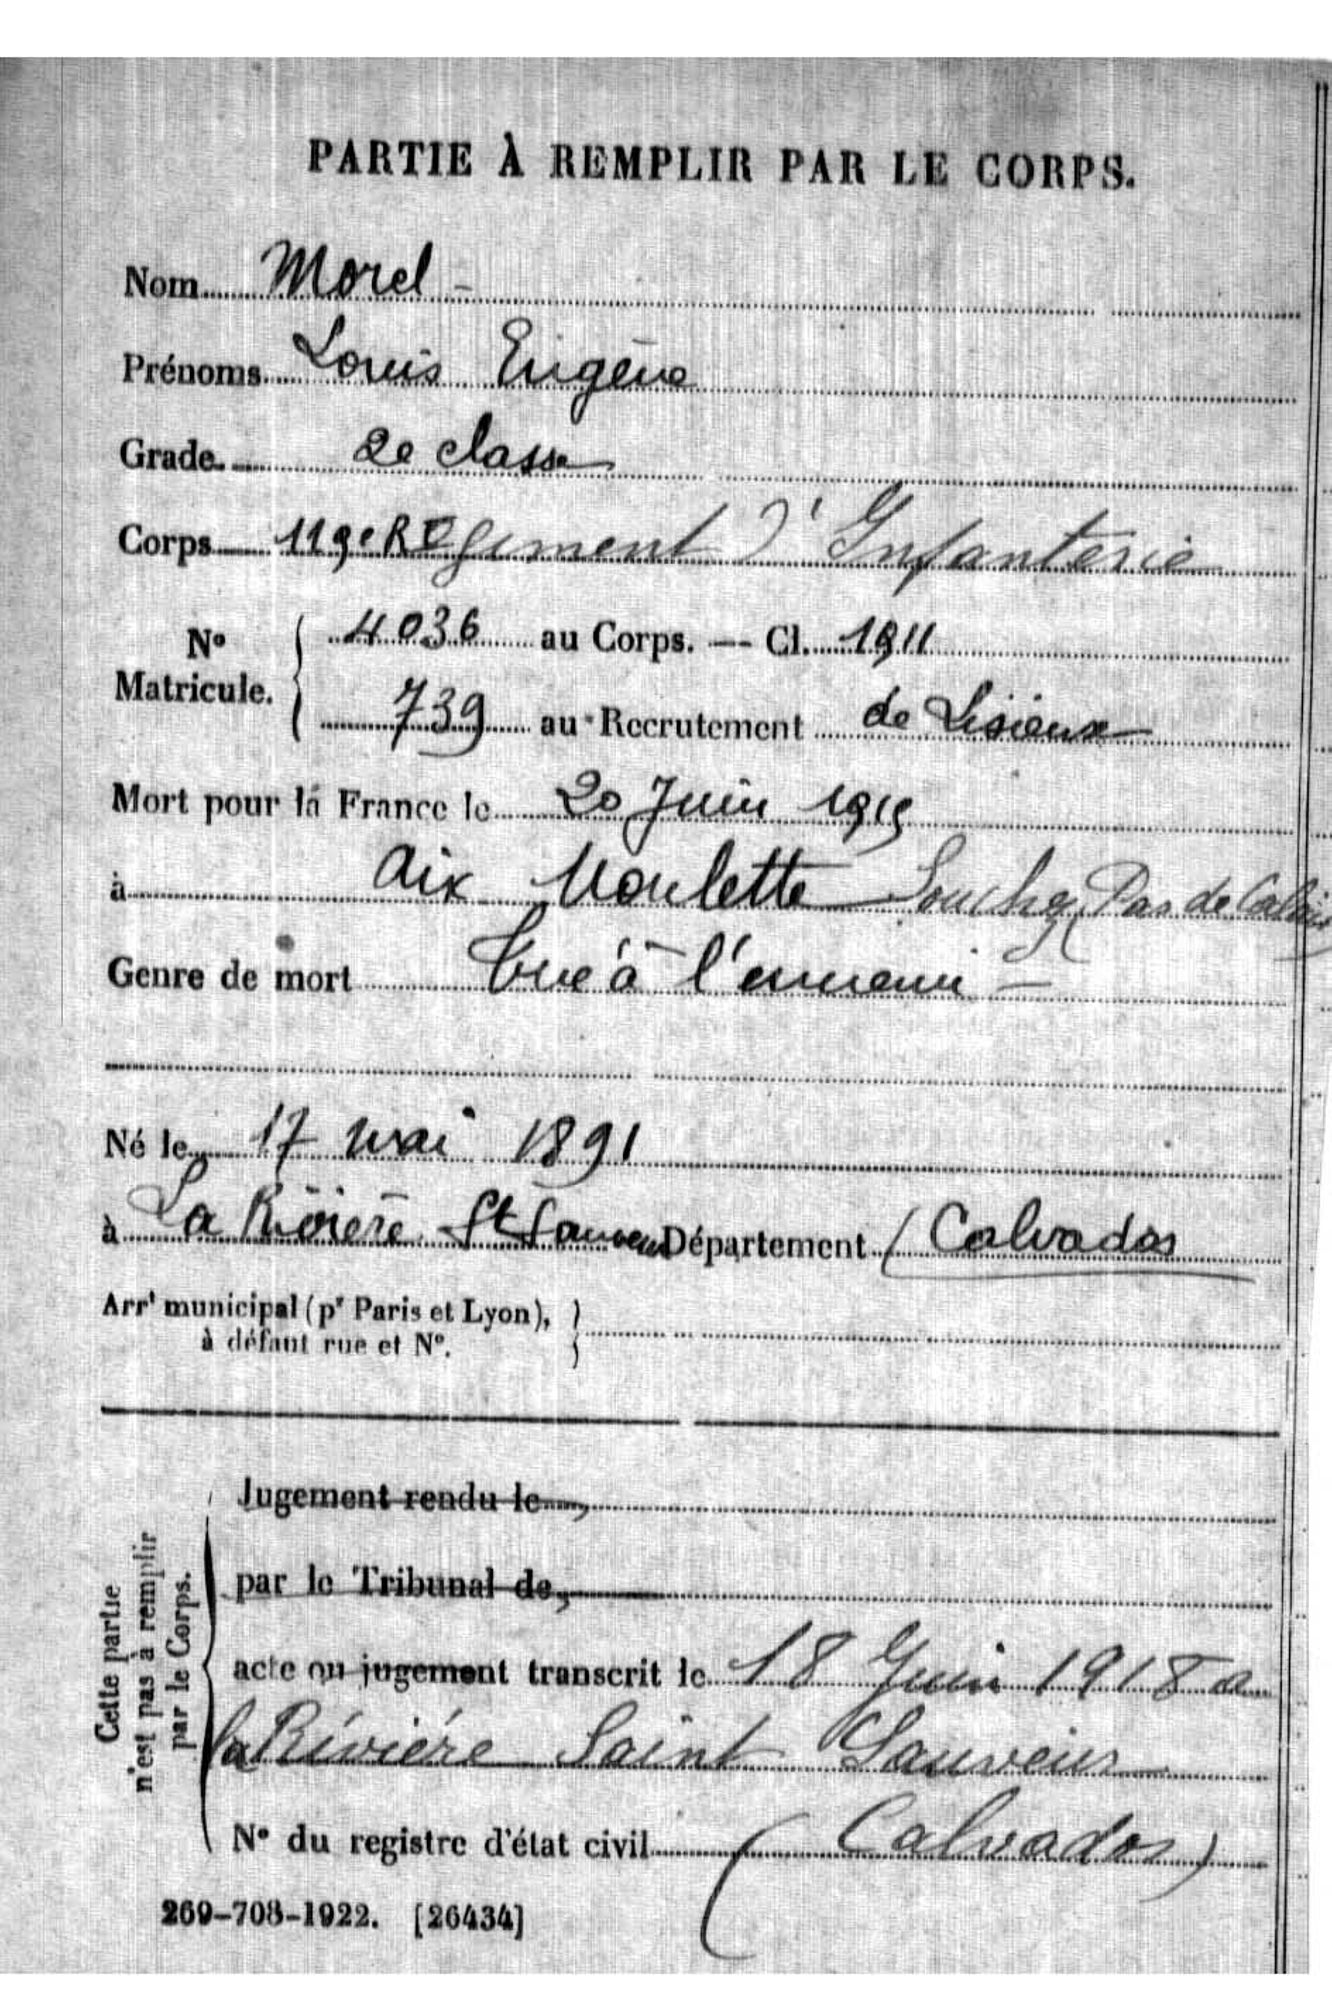 PARTIE À REMPLIR PAR LE CORPS.
Nom Morel
Prénoms Louis Eugène
Grade 2e classe
Corps 119e Régiment d'Infanterie
N° Matricule. { 4036 au Corps. — Cl. 1911
739 au Recrutement de Lisieux
Mort pour la France le 20 Juin 1915
à Aix Noulette Souchez (Pas de Calais
Genre de mort Tué à l'ennemi
Né le 17 mai 1891
à La Rivière St Sauveur Département (Calvados
Arrt municipal (pr Paris et Lyon),
à défaut rue et N°.
Cette partie
n'est pas à remplir
par le Corps.
Jugement rendu le
par le Tribunal de
acte ou jugement transcrit le 18 Juin 1918 a
la Rivière Saint Sauveur
N° du registre d'état civil (Calvados)
269-708-1922. [26434]